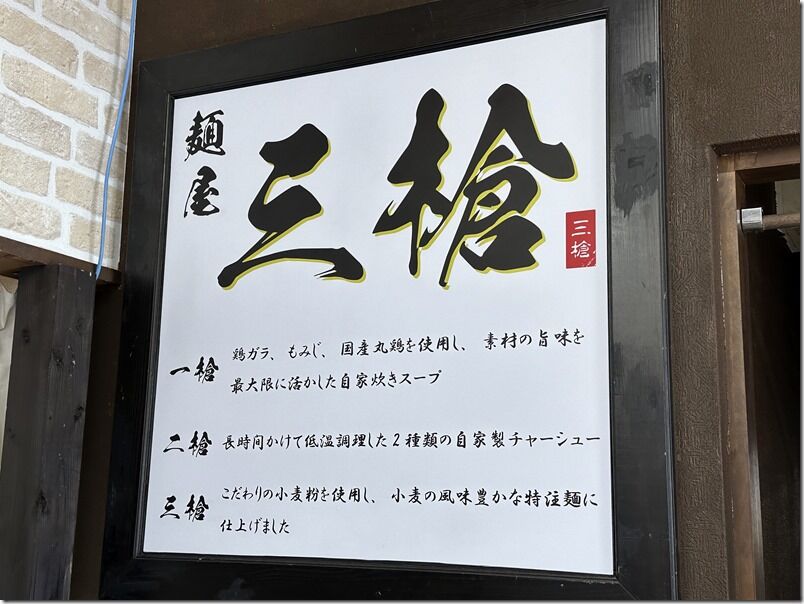 麺屋
三槍
三槍
一槍
鶏ガラ、もみじ、国産丸鶏を使用し、素材の旨味を
最大限に活かした自家炊きスープ
二槍
長時間かけて低温調理した2種類の自家製チャーシュー
三槍
こだわりの小麦粉を使用し、小麦の風味豊かな特注麺に
仕上げました